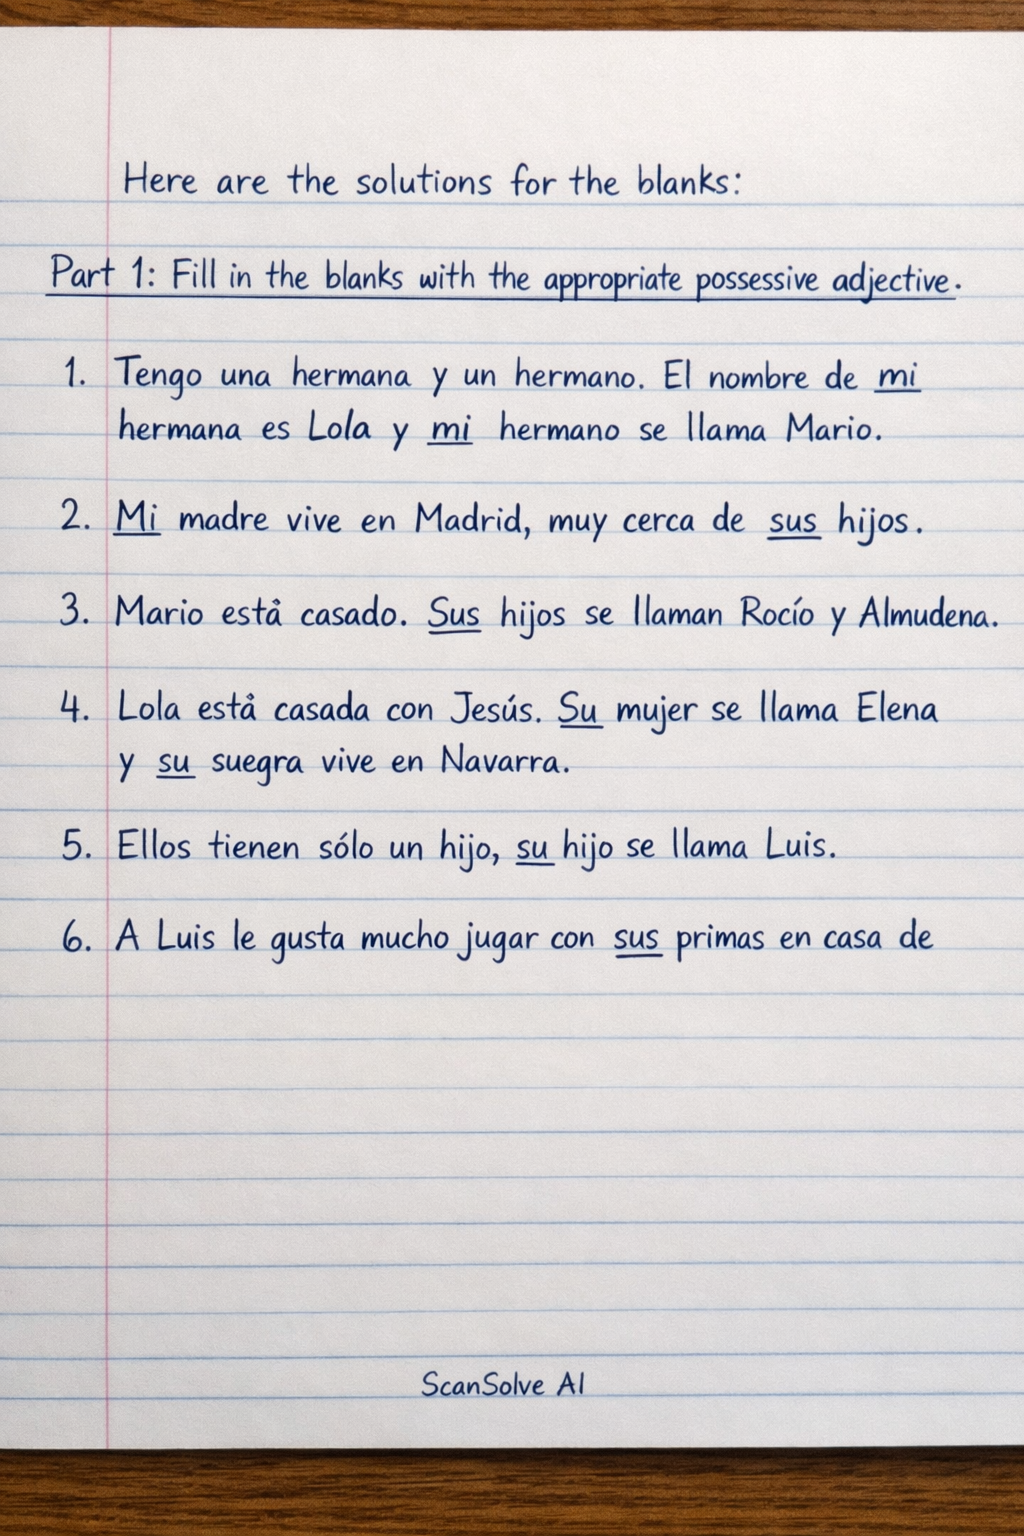 Here are the solutions for the blanks:
Part 1: Fill in the blanks with the appropriate possessive adjective.
1. Tengo una hermana y un hermano. El nombre de mi
hermana es Lola y mi hermano se llama Mario.
2. Mi madre vive en Madrid, muy cerca de sus hijos.
3. Mario está casado. Sus hijos se llaman Rocío y Almudena.
4. Lola está casada con Jesús. Su mujer se llama Elena
y su suegra vive en Navarra.
5. Ellos tienen sólo un hijo, su hijo se llama Luis.
6. A Luis le gusta mucho jugar con sus primas en casa de
ScanSolve AI